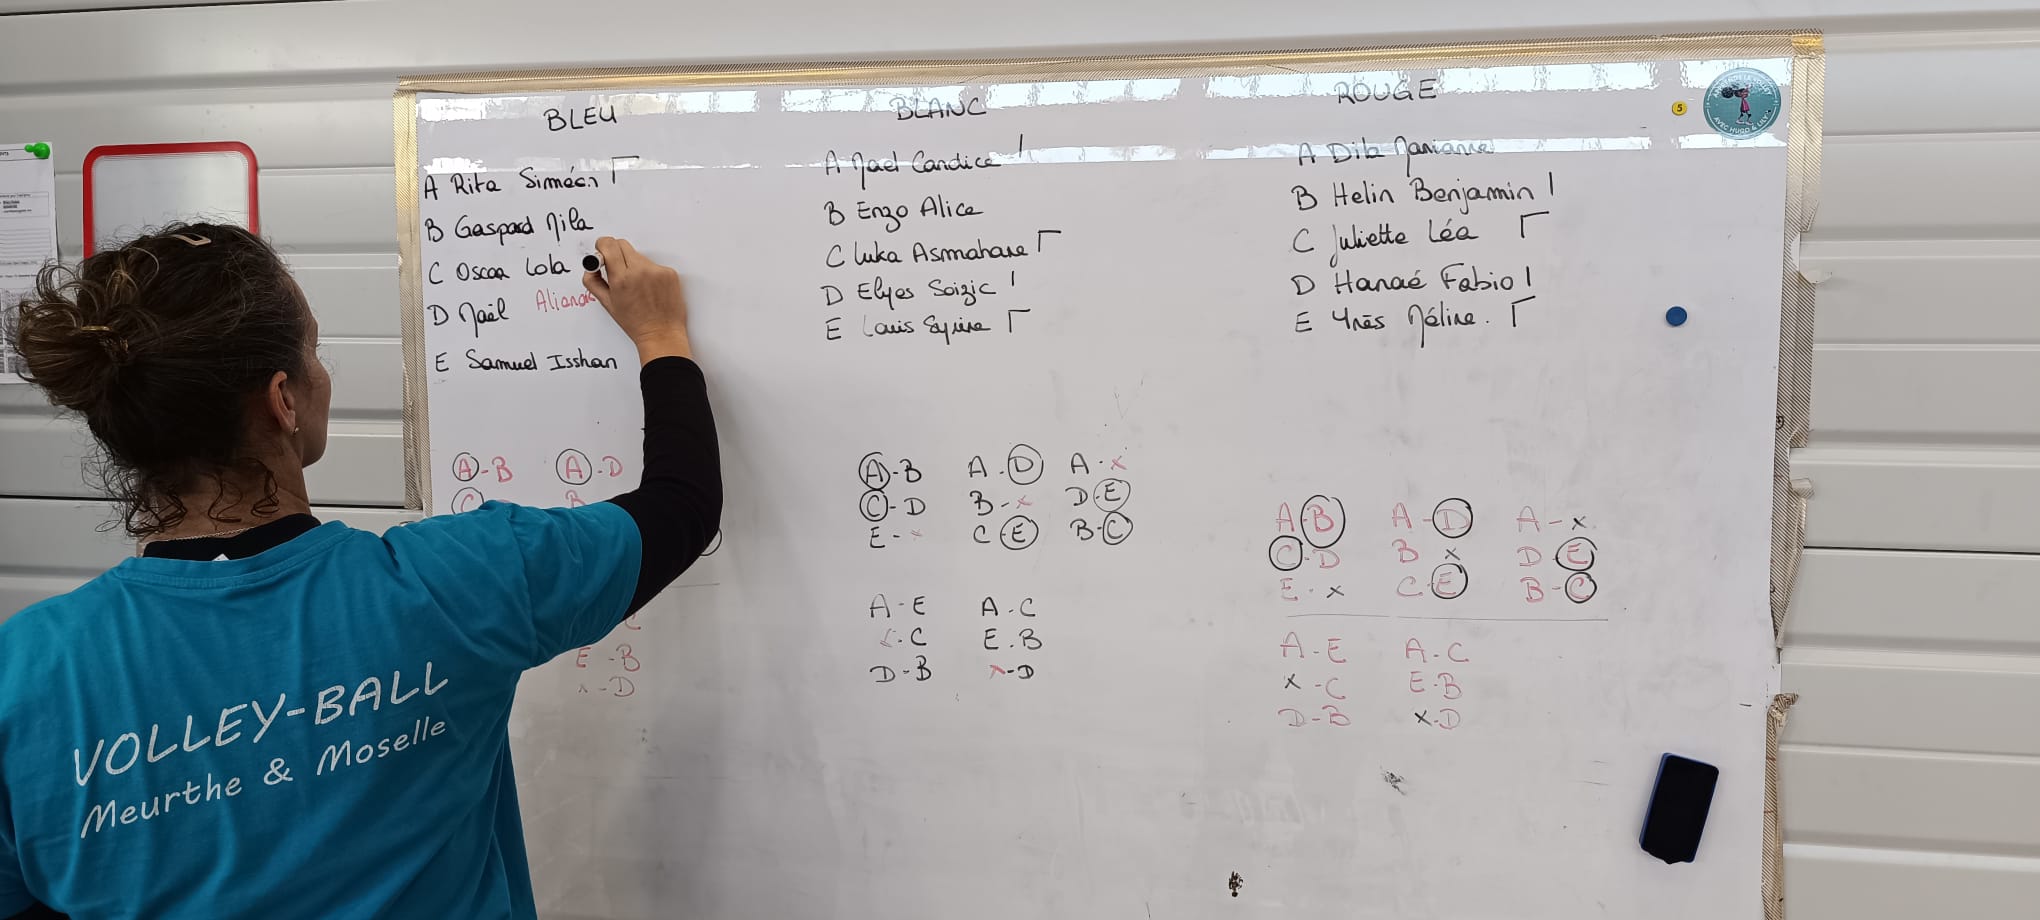 BLEU
A Rita Siméon
B Gaspard Mila
C Oscar Lola
D Maël
E Samuel Isshan
A-B A-D
C
B
E-B
x-D
BLANC
A Mael Candice
B Enzo Alice
C Luka Asmahane
D Elyes Soizic
E Louis
A-B A-D A-x
C-D B-x D-E
E-x C-E B-C
A-E A-C
x-C E-B
D-B x-D
ROUGE
A Marianne
B Helin Benjamin
C Juliette Léa
D Hanaé Fabio
E Méline.
A-B A-D A-x
C-D B x D-E
E-x C-E B-C
A-E A-C
x-C E-B
D-B x-D
5
AVEC HUGO & LILY
VOLLEY-BALL
Meurthe & Moselle